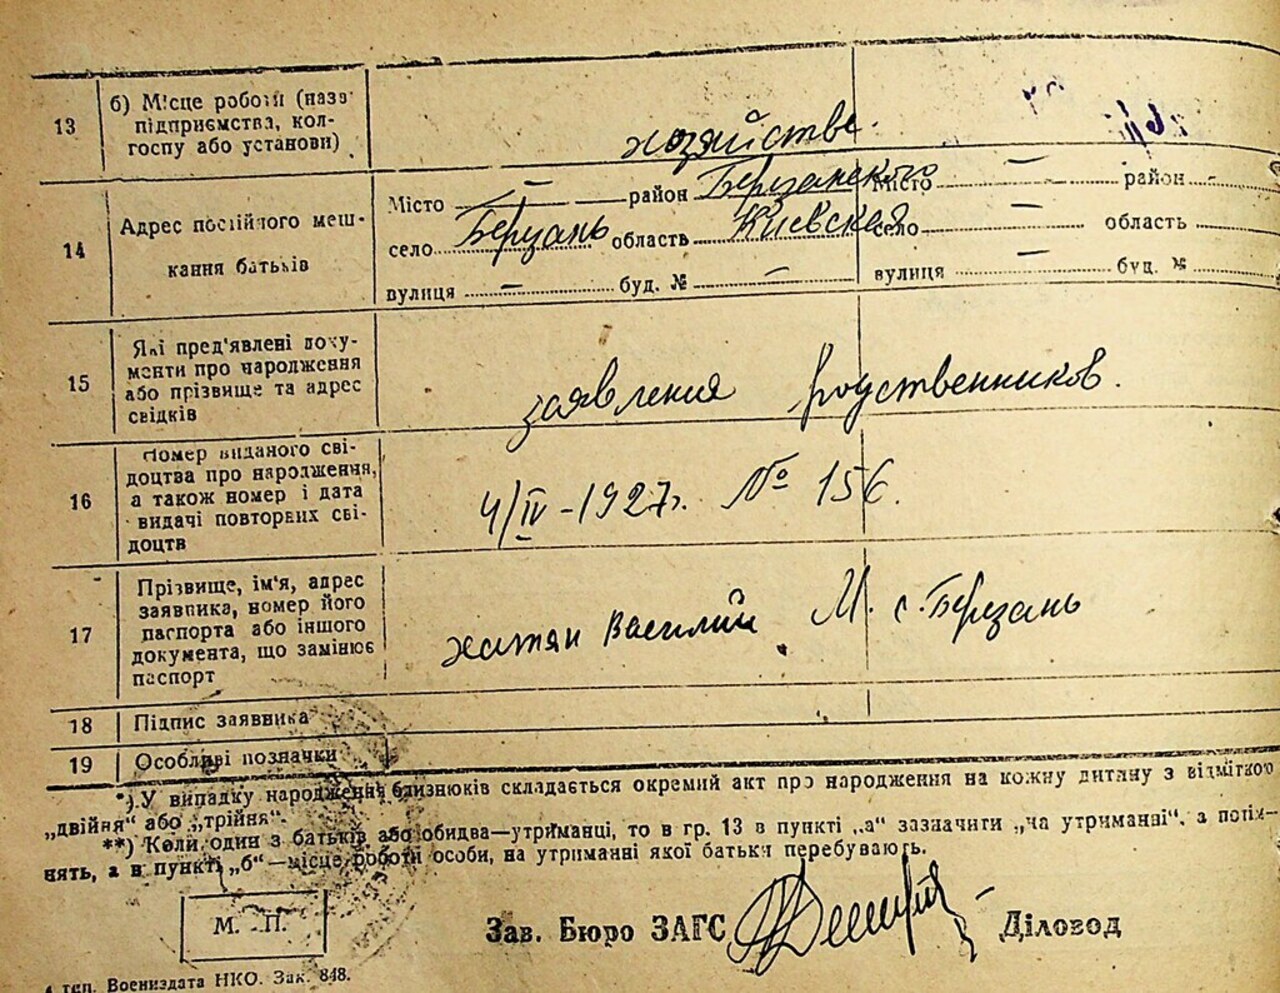 13 б) Місце роботи (назв
підприємства, кол-
госпу або установи)
хозяйстве.
14 Адрес постійного меш-
кання батьків
Місто — район Березанского Місто — район
село Березань область Киевская село — область
вулиця — буд. № — вулиця — буд. №
15 Які пред'явлені доку-
менти про народження
або прізвище та адрес
свідків
заявления родственников.
16 Номер виданого сві-
доцтва про народження,
а також номер і дата
видачі повторних сві-
доцтв
4/IV-1927г. № 156.
17 Прізвище, ім'я, адрес
заявника, номер його
паспорта або іншого
документа, що замінює
паспорт
Василий М. с. Березань
18 Підпис заявника
19 Особливі позначки
*) У випадку народження близнюків складається окремий акт про народження на кожну дитину з відміткою
„двійня" або „трійня".
**) Коли один з батьків або обидва—утриманці, то в гр. 13 в пункті „а" зазначити „на утриманні", а
нять, а в пункті „б"—місце роботи особи, на утриманні якої батьки перебувають.
М. П.
Зав. Бюро ЗАГС Діловод
тип. Воениздата НКО. Зак. 848.